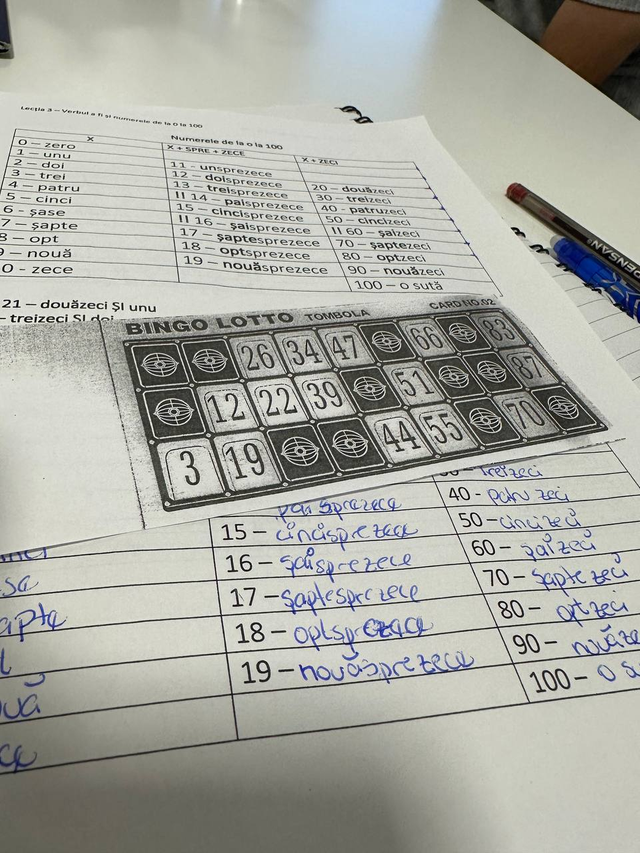 Lecția 3 – Verbul a fi și numerele de la 0 la 100
Numerele de la 0 la 100
X
X + SPRE + ZECE
X + ZECI
0 – zero
1 – unu
11 - unsprezece
2 – doi
12 – doisprezece
20 – douăzeci
3 – trei
13 – treisprezece
30 – treizeci
4 – patru
!! 14 – paisprezece
40 – patruzeci
5 – cinci
15 – cincisprezece
50 – cincizeci
6 - șase
!! 16 – șaisprezece
!! 60 – șaizeci
7 – șapte
17 – șaptesprezece
70 – șaptezeci
8 – opt
18 – optsprezece
80 – optzeci
9 – nouă
19 – nouăsprezece
90 – nouăzeci
0 - zece
100 – o sută
21 – douăzeci ȘI unu
– treizeci ȘI doi
BINGO LOTTO TOMBOLA CARD NO.02
26 34 47 66 83
12 22 39 51 87
3 19 44 55 70
treizeci
paisprezece
40 - patruzeci
15 – cincisprezece
50 – cincizeci
16 – șaisprezece
60 – șaizeci
17 – șaptesprezece
70 – șaptezeci
18 – optsprezece
80 – optzeci
19 – nouăsprezece
90 – nouăze
100 – o su